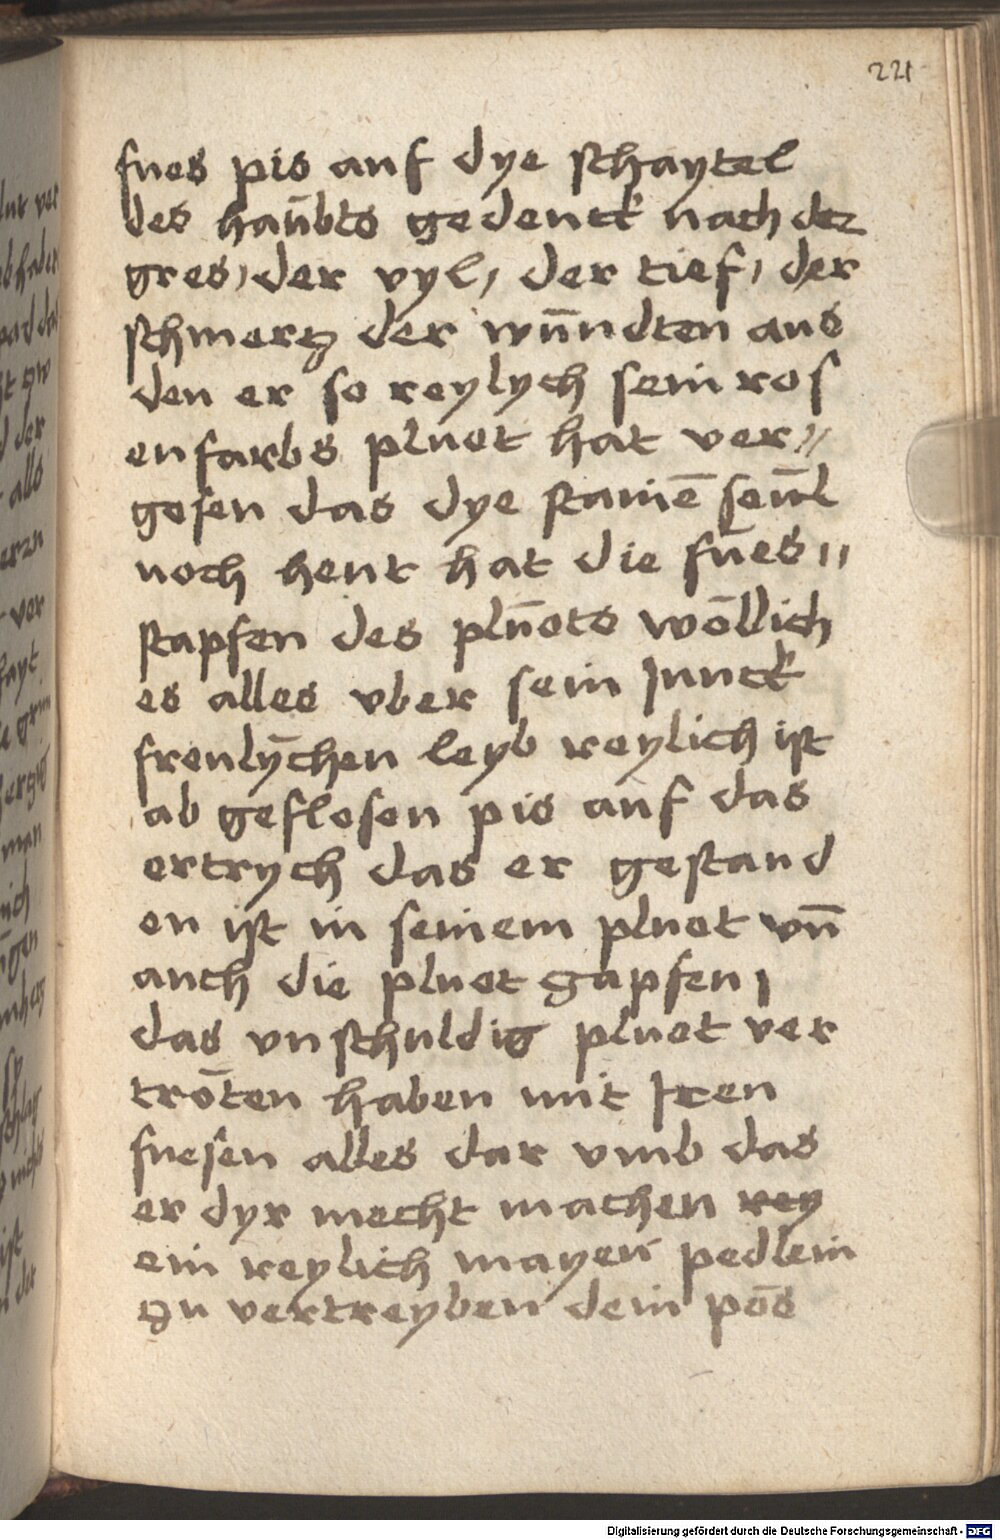 221
fues pis auf dye schaytel
des haūbts gedenck nach der
gres, der vyl, der tief, der
schmertz der wūndten aus
den er so reylych sein ros
enfarbs pluet hat ver//
gosen das dye stainē seūl
noch heut hat die fues//
stapfen des plūets wōllich
es alles vber sein Junck
freulȳchen leyb reylich ist
ab geflosen pis auf das
ertrych das er gestand
en ist in seinem pluet vn̄
auch die pluet zapfen,
das vnschuldig pluet ver
trōten haben mit Iren
fuesen alles dar vmb das
er dyr mecht machen rey
ein reylich mayen pedlein
zu vertreyben dein pōs
Digitalisierung gefördert durch die Deutsche Forschungsgemeinschaft - DFG